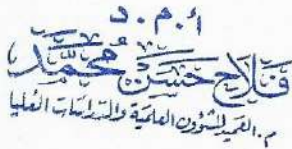 أ.م.د
فلاح حسن محمد
م. العميد للشؤون العلمية والدراسات العليا